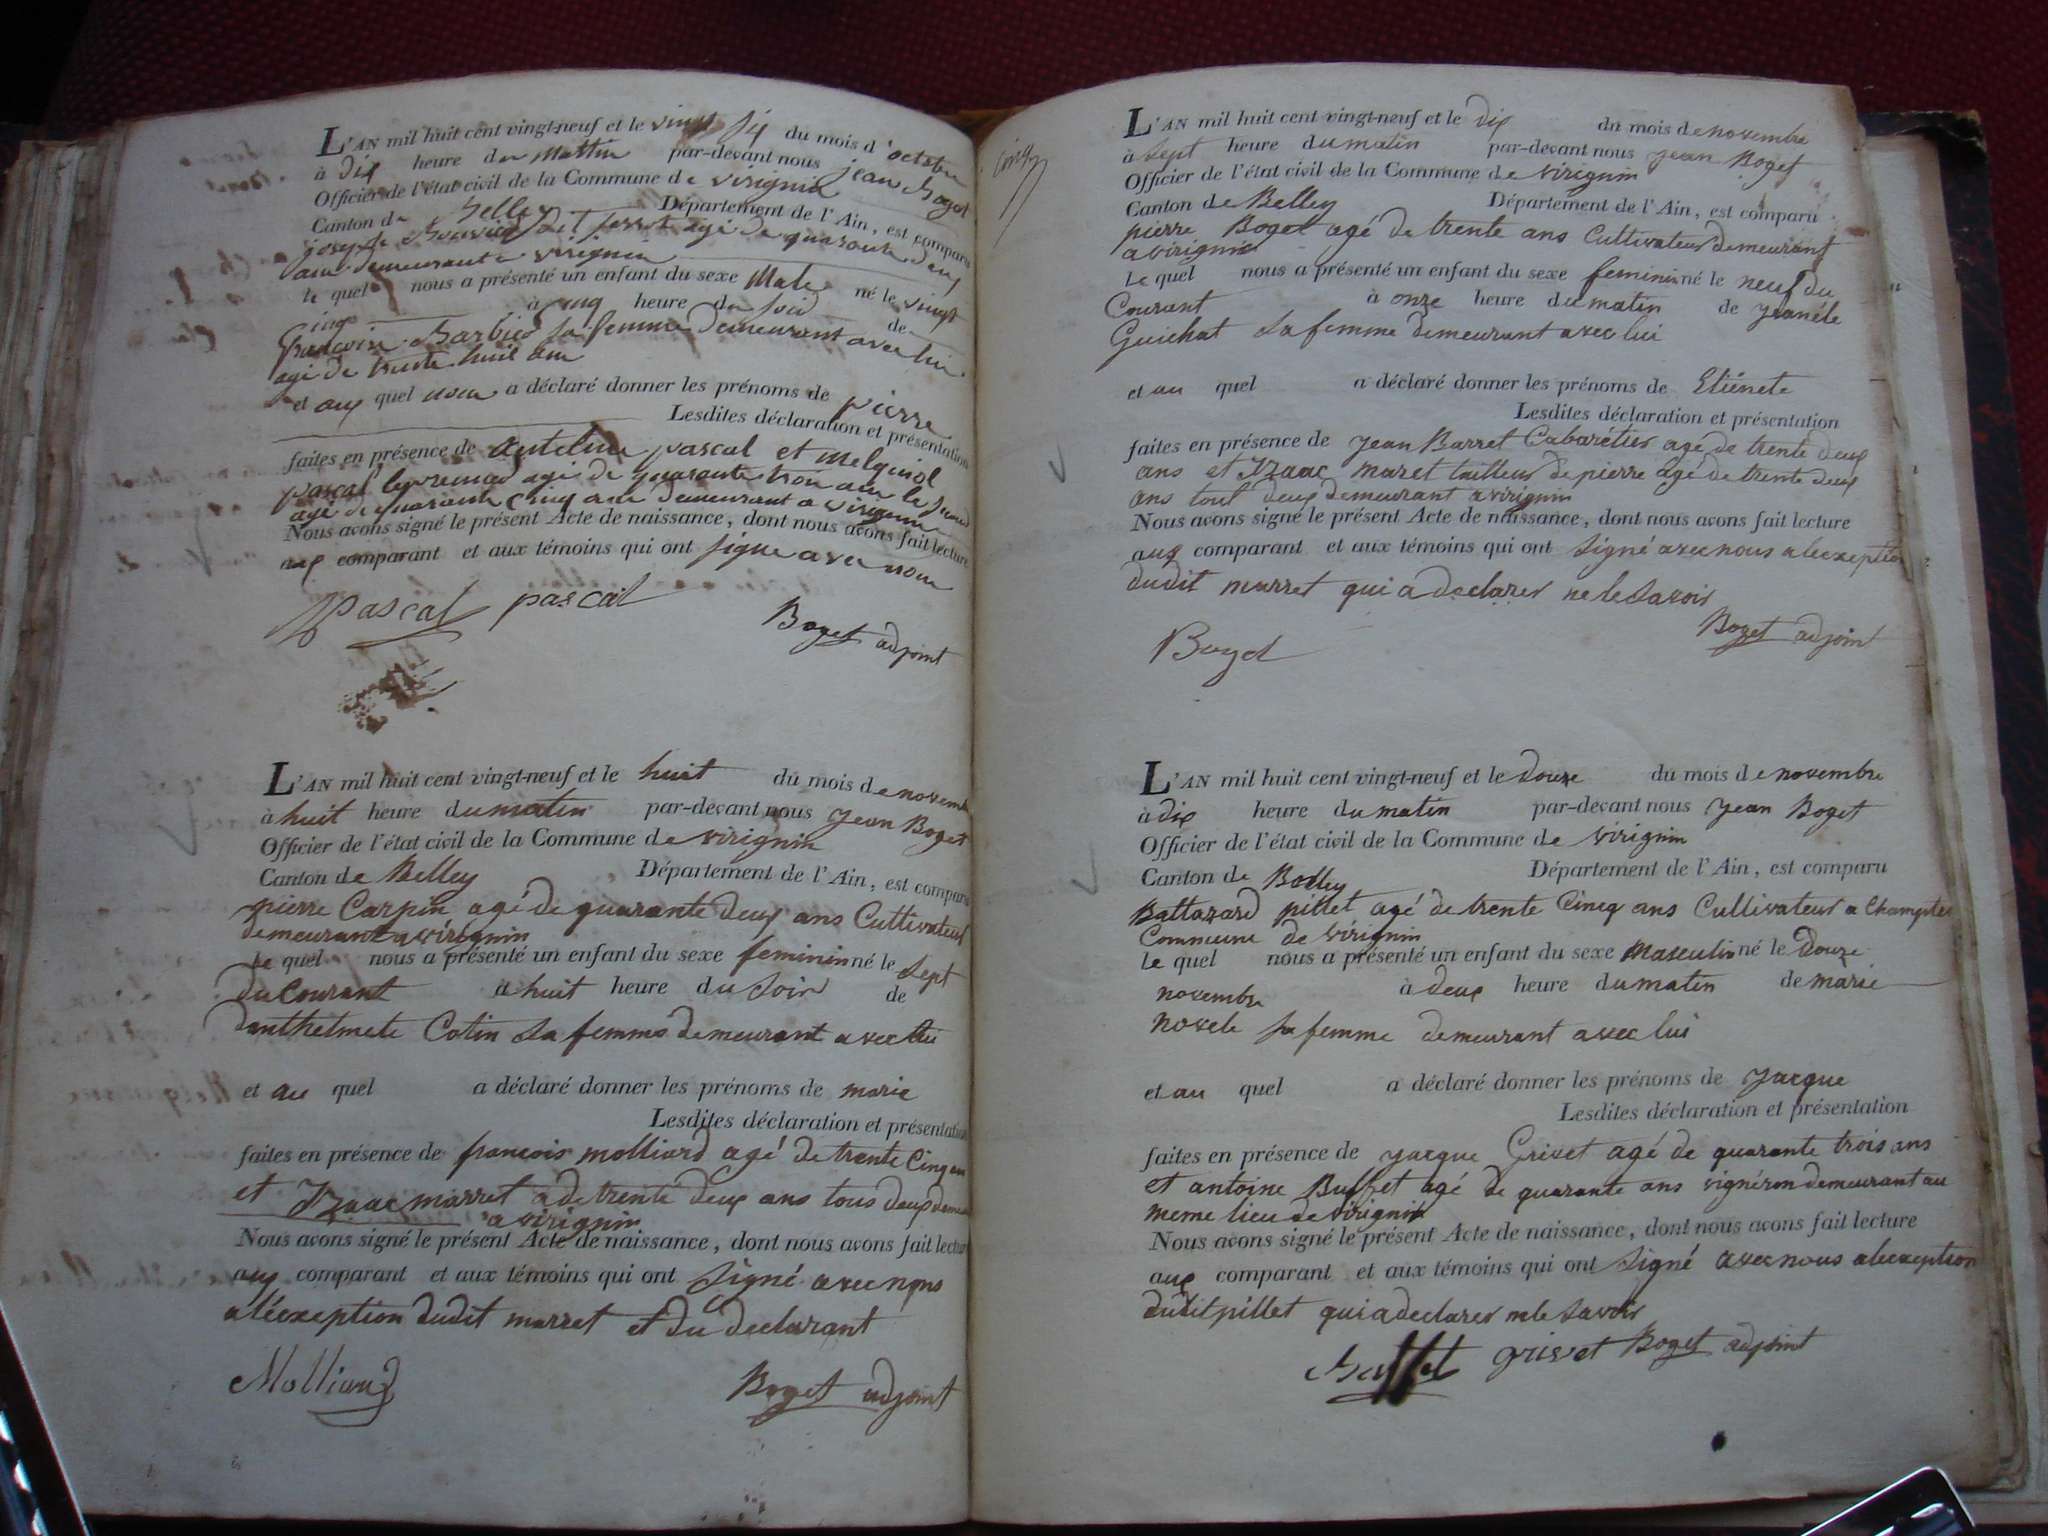 L'AN mil huit cent vingt-neuf et le vingt six du mois d'octobre
à dix heure du mattin par-devant nous jean Boget
Officier de l'état civil de la Commune de virignin
Canton de Belley Département de l'Ain, est comparu
joseph Bouvier dit perrot agé de quarante deux
ans demeurant a virignin
le quel nous a présenté un enfant du sexe Male né le vingt
cinq à cinq heure du soir de
françoise Barbier sa femme demeurant avec lui
agé de trente huit ans
et au quel nous a déclaré donner les prénoms de pierre
Lesdites déclaration et présentation
faites en présence de antelme pascal et melquiol
pascal le premier agé de quarante trois ans le second
agé de quarante cinq ans demeurant a virignin
Nous avons signé le présent Acte de naissance, dont nous avons fait lecture
aux comparant et aux témoins qui ont signe avec nous
Pascal pascal
Boget adjoint
L'AN mil huit cent vingt-neuf et le huit du mois de novembre
à huit heure du matin par-devant nous jean Boget
Officier de l'état civil de la Commune de virignin
Canton de Belley Département de l'Ain, est comparu
pierre Carpin agé de quarante deux ans Cultivateur
demeurant a virignin
le quel nous a présenté un enfant du sexe feminin né le sept
du Courant à huit heure du soir de
danthelmete Cotin sa femme demeurant avec lui
et au quel a déclaré donner les prénoms de marie
Lesdites déclaration et présentation
faites en présence de françois molliard agé de trente Cinq ans
et Izaac marret a de trente deux ans tous deux demeu
a virignin
Nous avons signé le présent Acte de naissance, dont nous avons fait lecture
aux comparant et aux témoins qui ont signé avec nous
a léexeption dudit marret et du declarant
Molliard
Boget adjoint
L'AN mil huit cent vingt-neuf et le dix du mois de novembre
à sept heure du matin par-devant nous jean Boget
Officier de l'état civil de la Commune de virignin
Canton de Belley Département de l'Ain, est comparu
pierre Boget agé de trente ans Cultivateur demeurant
a virignin
le quel nous a présenté un enfant du sexe feminin né le neuf du
Courant à onze heure du matin de jeanéte
Guichat sa femme demeurant avec lui
et au quel a déclaré donner les prénoms de Etiénete
Lesdites déclaration et présentation
faites en présence de jean Barret Cabarétier agé de trente deux
ans et Izaac maret tailleur de pierre agé de trente deux
ans tout deux demeurant a virignin
Nous avons signé le présent Acte de naissance, dont nous avons fait lecture
aux comparant et aux témoins qui ont signé avec nous a léexeption
dudit marret qui a declarer ne le savoir
Boget adjoint
L'AN mil huit cent vingt-neuf et le douze du mois de novembre
à dix heure du matin par-devant nous jean Boget
Officier de l'état civil de la Commune de virignin
Canton de Belley Département de l'Ain, est comparu
Baltazard pillet agé de trente Cincq ans Cultivateur a
Commune de virignin
le quel nous a présenté un enfant du sexe masculin né le douze
novembre à deux heure du matin de marie
novele sa femme demeurant avec lui
et au quel a déclaré donner les prénoms de jacque
Lesdites déclaration et présentation
faites en présence de jacque Grivet agé de quarante trois ans
et antoine Buffet agé de quarante ans vignéron demeurant au
meme lieu de virignin
Nous avons signé le présent Acte de naissance, dont nous avons fait lecture
aux comparant et aux témoins qui ont signé avec nous a léexeption
dudit pillet qui a declarer ne le savoir
Buffet grivet Boget adjoint